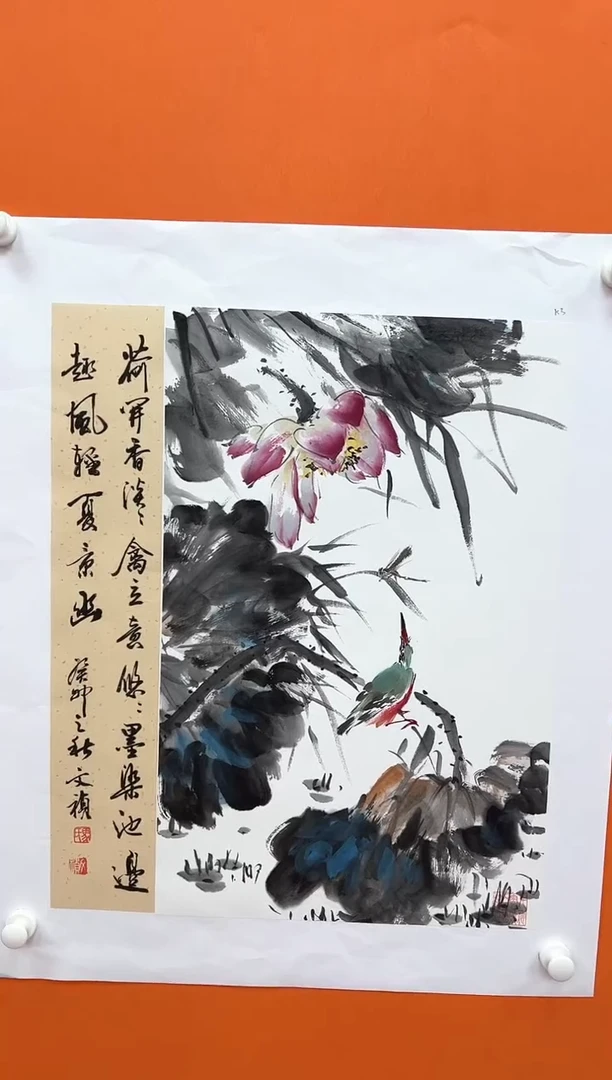 荷开香淡淡禽立意悠悠墨染池边
趣风轻夏景幽
癸卯之秋文祯
K3